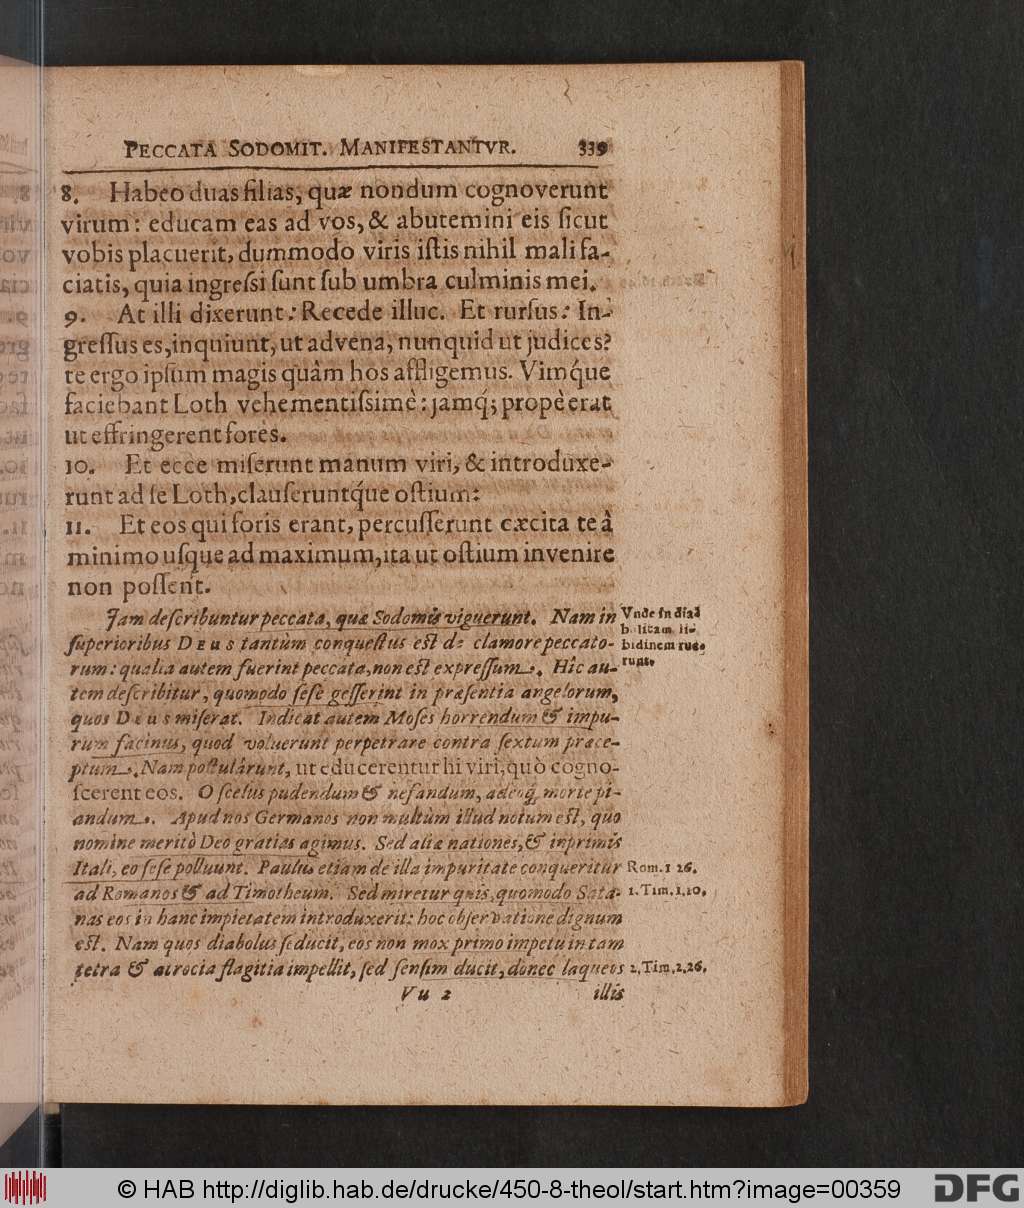 PECCATA SODOMIT. MANIFESTANTVR. 339
8. Habeo duas filias, quæ nondum cognoverunt
virum: educam eas ad vos, & abutemini eis ſicut
vobis placuerit, dummodo viris iſtis nihil mali fa-
ciatis, quia ingreſsi ſunt ſub umbra culminis mei.
9. At illi dixerunt: Recede illuc. Et rurſus: In-
greſſus es, inquiunt, ut advena, nunquid ut judices?
te ergo ipſum magis quàm hos affligemus. Vimq́ue
faciebant Loth vehementiſsimè: jamq́; propè erat
ut effringerent fores.
10. Et ecce miſerunt manum viri, & introduxe-
runt ad ſe Loth, clauſeruntq́ue oſtium:
11. Et eos qui foris erant, percuſſerunt cæcita te à
minimo uſque ad maximum, ita ut oſtium invenire
non poſſent.
Jam deſcribuntur peccata, quæ Sodomis viguerunt. Nam in
ſuperioribus DEUS tantùm conqueſtus eſt de clamore peccato-
rum: qualia autem fuerint peccata, non eſt expreſſum. Hîc au-
tem deſcribitur, quomodo ſeſe geſſerint in præſentia angelorum,
quos DEUS miſerat. Indicat autem Moſes horrendum & impu-
rum facinus, quod voluerunt perpetrare contra ſextum præce-
ptum. Nam poſtulârunt, ut educerentur hi viri, quò cogno-
ſcerent eos. O ſcelus pudendum & nefandum, adeoq́; morte pi-
andum. Apud nos Germanos non multùm illud notum eſt, quo
nomine meritò Deo gratias agimus. Sed aliæ nationes, & inprimis
Itali, eo ſeſe polluunt. Paulus etiam de illa impuritate conqueritur
ad Romanos & ad Timotheum. Sed miretur quis, quomodo Sata-
nas eos in hanc impietatem introduxerit: hoc obſervatione dignum
eſt. Nam quos diabolus ſeducit, eos non mox primo impetu in tam
tetra & atrocia flagitia impellit, ſed ſenſim ducit, donec laqueos
Vu 2 illis
Vnde in dia-
bolicam li-
bidinem rue-
runt.
Rom. 1 26.
1. Tim. 1, 10.
2, Tim, 2, 26.
© HAB http://diglib.hab.de/drucke/450-8-theol/start.htm?image=00359
DFG